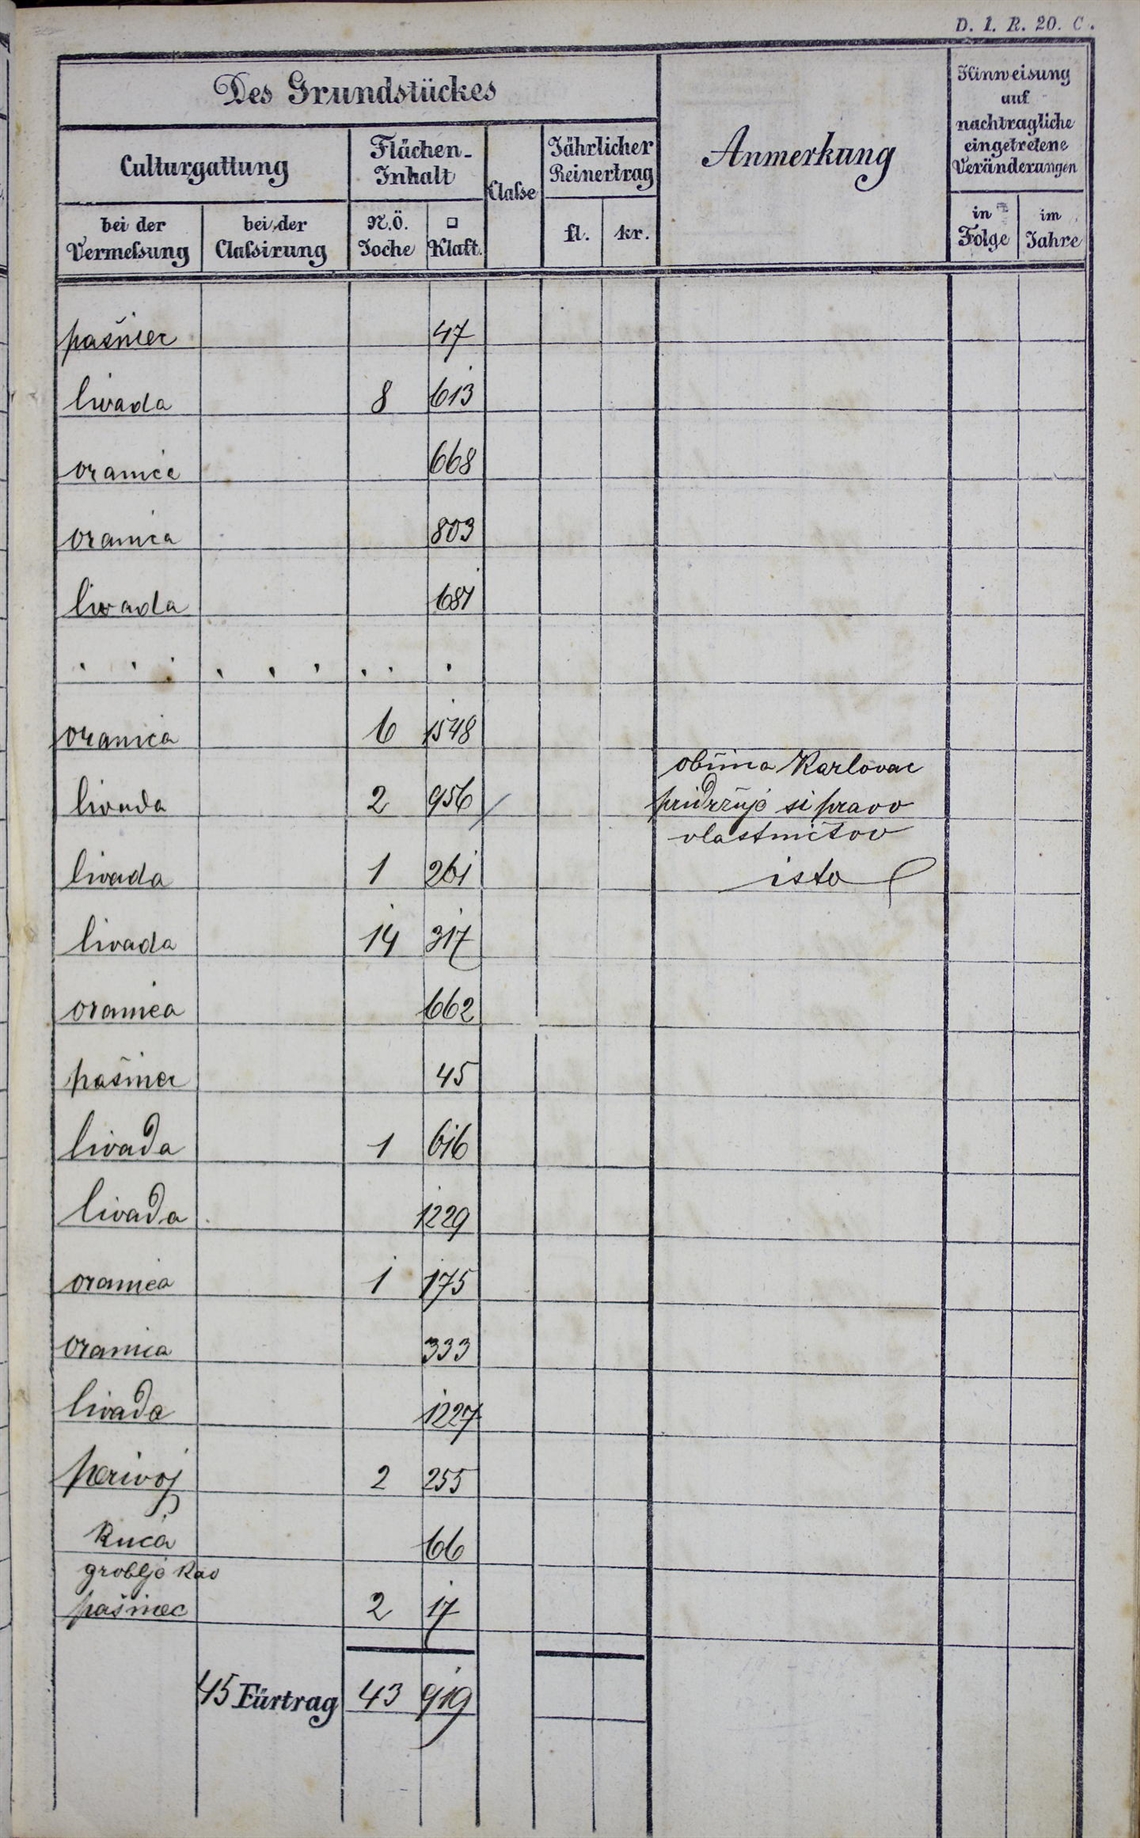 D. 1. R. 20. C.
Des Grundstückes
Anmerkung
Hinweisung auf nachtragliche eingetretene Veränderungen
Culturgattung
Flächen-Inhalt
Classe
Jährlicher Reinertrag
bei der Vermessung
bei der Classirung
N.Ö. Joche
□ Klaft.
fl.
kr.
in Folge
im Jahre
pašnec 47
livada 8 613
oranica 668
oranica 803
livada 681
. . . . . . . . .
oranica 6 1548
obćina Karlovac
livada 2 956 / pridržuje si pravo
vlastničtvo
livada 1 261 isto
livada 14 317
oranica 662
pašnec 45
livada 1 616
livada 1229
oranica 1 175
oranica 333
livada 1227
perivoj 2 255
kuća 66
groblje kao
pašinec 2 17
45 Fürtrag 43 919